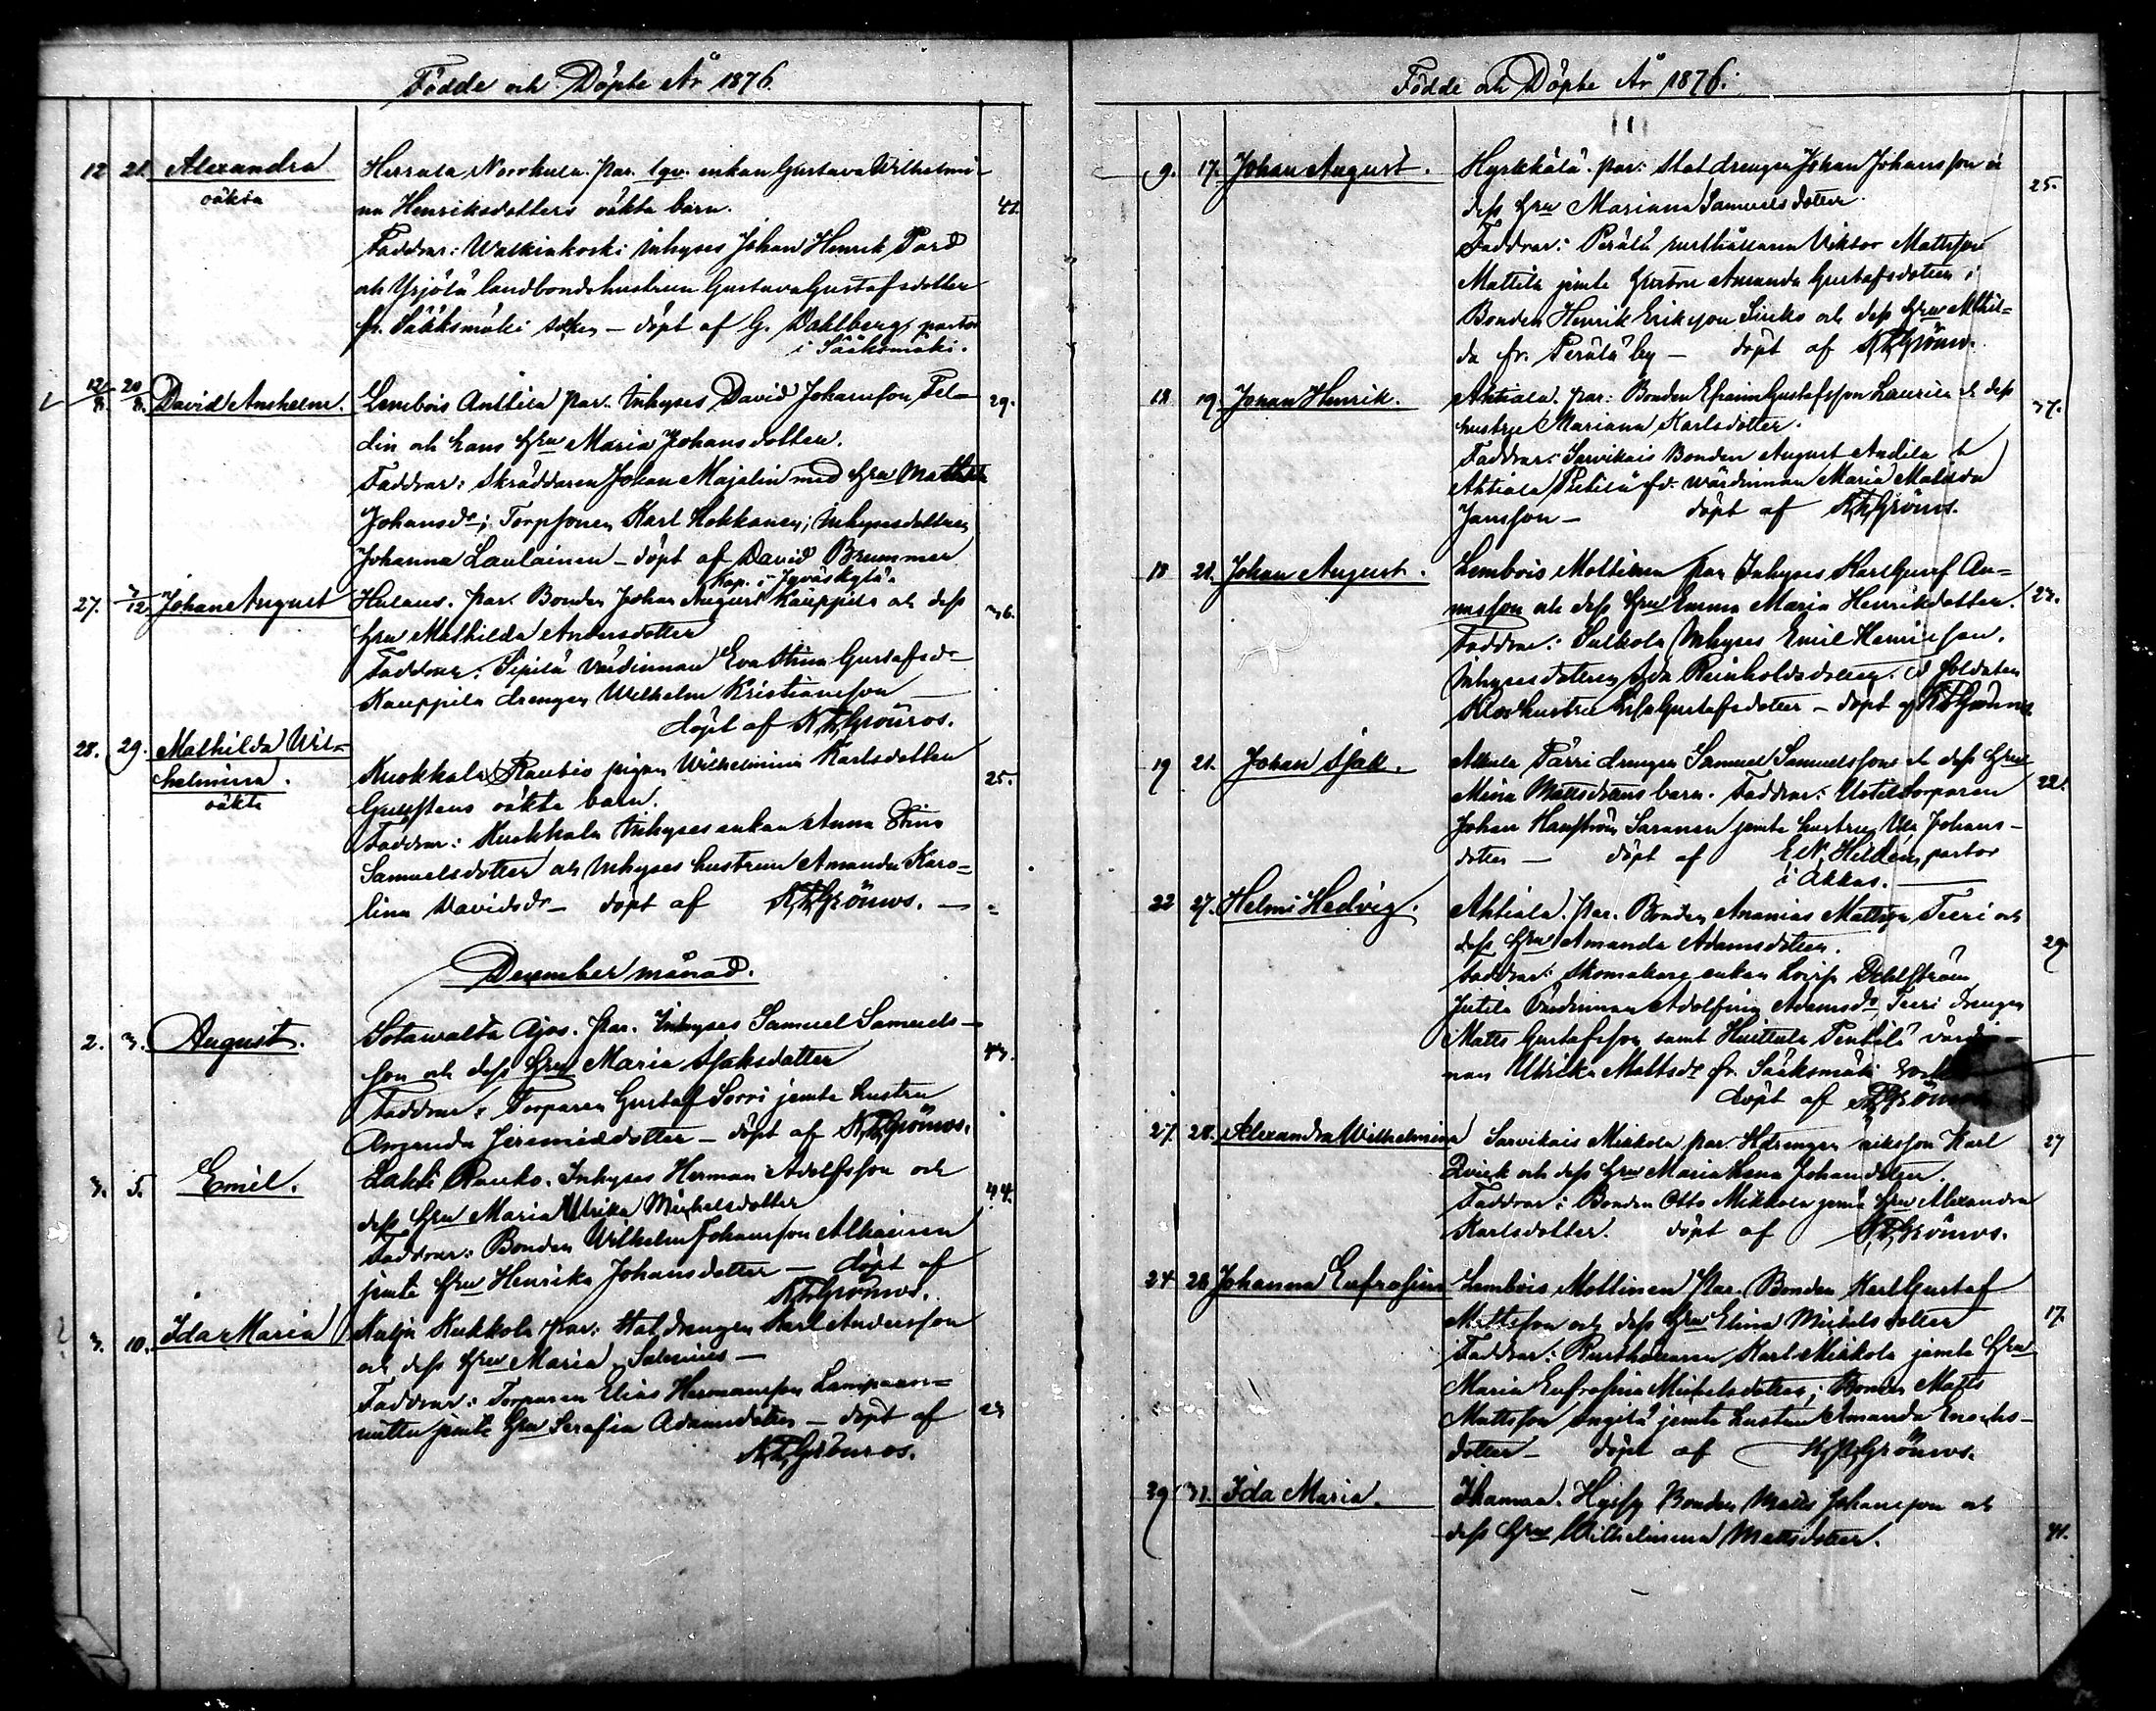 Födde och Döpte År 1876.
12 21. Alexandra
oäkta
Herrala Norrkula. par. lgv. enkan Gustava Wilhelmi-
na Henriksdotters oäkta barn. 41.
Faddrar: Walkiakoski inhyses Johan Henrik Pard
och Yrjölä landbondehustrun Gustava Gustafsdotter
fr. Sääksmäki socken – döpt af G. Dahlberg, pastor
i Sääksmäki.
12/8. 20/8. David Anshelm.
Lembois Anttila par. Inhyses David Johansson Fel- 29.
din och hans Hru Maria Johansdotter.
Faddrar: Skräddaren Johan Majalin med Hru Mathilda
Johansdr; Torpsonen Karl Hokkanen; Inhysesdottren
Johanna Laulainen – döpt af David Brummer
Kap. i Jyväskylä.
27. 3/12 Johan August
Hulaus. par. Bonden Johan August Kauppila och dess 36.
Hru Mathilda Antonsdotter
Faddrar: Sipilä värdinnan Eva Stina Gustafsdr
Kauppila drengen Wilhelm Kristiansson –
döpt af K. F. Grönroos.
28. 29. Mathilda Wil-
helmina.
oäkta
Kuokkala Rautio pigan Wilhelmina Karlsdotter 25.
Gullstens oäkta barn.
Faddrar: Kuokkala Inhysesenkan Anna Stina
Samuelsdotter och Inhyses hustrun Amanda Karo-
lina Davidsdr – döpt af K. F. Grönroos. –
December månad.
2. 3. August.
Sotavalta Ajos. Par. Inhyses Samuel Samuels- 43.
son och dess Hru Maria Isaksdotter
Faddrar: Torparen Gustaf Sorri jemte hustru
Amanda Jeremiædotter – döpt af K. F. Grönroos.
3. 5. Emil.
Lahti Rauko. Inhyses Herman Adolfsson och 44.
dess Hru Maria Ulrika Michelsdotter
Faddrar: Bonden Wilhelm Johansson Alhainen
jemte Hru Henrika Johansdotter – döpt af
K. F. Grönroos.
3. 10. Ida Maria
Kulju Kukkola par: Statdrengen Karl Andersson
och dess Hru Maria Salenius –
Faddrar: Torparen Elias Hermansson
jemte Hru Serafia Adamsdotter – döpt af 23
K. F. Grönroos.
Födde och Döpte År 1876.
9. 17. Johan August.
Hyrkkälä. par: Statdrengen Johan Johansson o 25.
dess Hru Mariana Samuelsdotter.
Faddrar: Perälä rusthållaren Viktor Mattsson
Mattila jemte hustru Amanda Gustafsdotter;
Bonden Henrik Eriksson Sireks och dess Hru Mathil-
da fr. Perälä by – döpt af K. F. Grönroos.
18 19. Johan Henrik.
Ahtiala. par: Bonden Efraim Gustafsson Laurila & dess 37.
hustru Mariana Karlsdotter.
Faddrar: Sarvikais Bonden August Andila &
Ahtiala Pietilä fd. värdinnan Maria Matilda
Jansson – döpt af K. F. Grönroos.
18 21. Johan August.
Lembois Mottinen par Inhyses Karl Gustf An-
nusson och dess Hru Emma Maria Henriksdotter. 23.
Faddrar: Sulkola Inhyses Emil Henriksson,
Inhysesdottren Ida Reinholdsdotter. & Soldaten
hustru Lisa Gustafsdotter – döpt af K. F. Grönroos
19 21. Johan Isak.
Akkala Pärri drengen Samuel Samuelsson & dess Hru 22.
Mina Mattsdotters barn. Faddrar: Uotila torparen
Johan Hanström Saranen jemte hustru Ulla Johans-
dotter – döpt af E. N. Hildén, pastor
i Akkas. –
22 27. Helmi Hedvig.
Ahtiala. Par. Bonden Ananias Mattsson Teeri och
dess Hru Amanda Adamsdotter. 29.
Faddrar: Skomakare enkan Lovisa Dahlström
Jutila värdinnan Adolfina Adamsdr, Teeri drengen
Matts Gustafsson samt Huittula Penttilä värdin-
nan Ulrika Mattsdr fr. Sääksmäki socken
döpt af K. F. Grönroos
27. 28. Alexandra Wilhelmina
Sarvikais Mikkola par. Karl 27
Qvick och dess Hru Maria Lena Johansdotter.
Faddrar: Bonden Otto Mikkola jemte Hru Alexandra
Karlsdotter. döpt af K. F. Grönroos.
24 28 Johanna Eufrosina
Lembois Mottinen Par. Bonden Karl Gustaf
Mattsson och dess Hru Elina Michelsdotter 17.
Faddrar: Rusthållaren Karl Mikkola jemte Hru
Maria Eufrosina Michelsdotter; Bonden Matts
Mattsson Angilä jemte hustru Amanda Enochs-
dotter – döpt af K. F. Grönroos.
29 31. Ida Maria.
Ihamaa. Hyssy Bonden Matts Johansson och
dess Hru Wilhelmina Mattsdotter. 41.